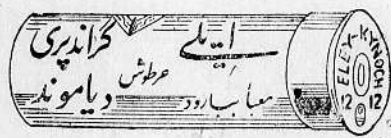 ایلی
گراندپری
خرطوش
معبأ ببارود
دیاموند
ELEY-KYNOCH
12 12